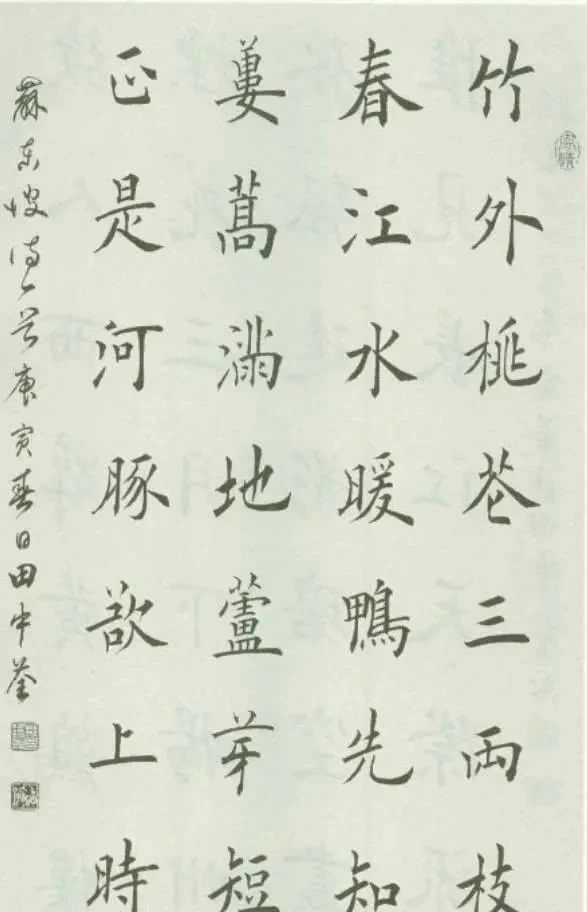 竹外桃花三兩枝
春江水暖鴨先知
蔞蒿滿地蘆芽短
正是河豚欲上時
蘇東坡詩一首庚寅春日田中